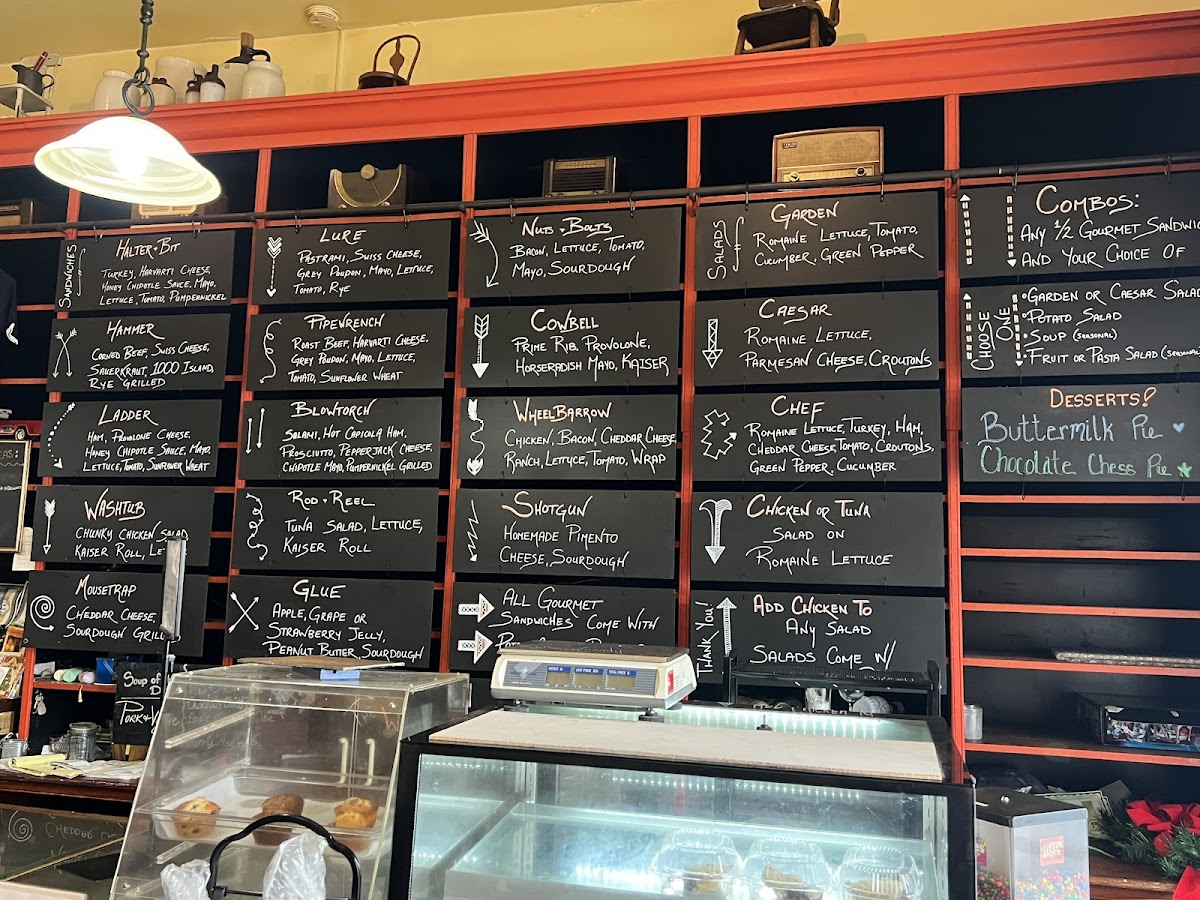 SANDWICHES
HALTER + BIT
TURKEY, HARVARTI CHEESE,
HONEY CHIPOTLE SAUCE, MAYO,
LETTUCE, TOMATO, PUMPERNICKEL
HAMMER
CORNED BEEF, SWISS CHEESE,
SAUERKRAUT, 1000 ISLAND,
RYE GRILLED
LADDER
HAM, PROVOLONE CHEESE,
HONEY CHIPOTLE SAUCE, MAYO,
LETTUCE, TOMATO, SUNFLOWER WHEAT
WASHTUB
CHUNKY CHICKEN SALAD
KAISER ROLL,
MOUSETRAP
CHEDDAR CHEESE,
SOURDOUGH GRILL
LURE
PASTRAMI, SWISS CHEESE,
GREY POUPON, MAYO, LETTUCE,
TOMATO, RYE
PIPEWRENCH
ROAST BEEF, HARVARTI CHEESE,
GREY POUPON, MAYO, LETTUCE,
TOMATO, SUNFLOWER WHEAT
BLOWTORCH
SALAMI, HOT CAPICOLA HAM,
PROSCIUTTO, PEPPERJACK CHEESE,
CHIPOTLE MAYO, PUMPERNICKEL GRILLED
ROD + REEL
TUNA SALAD, LETTUCE,
KAISER ROLL
GLUE
APPLE, GRAPE OR
STRAWBERRY JELLY,
PEANUT BUTTER, SOURDOUGH
NUTS + BOLTS
BACON, LETTUCE, TOMATO,
MAYO, SOURDOUGH
COWBELL
PRIME RIB, PROVOLONE,
HORSERADISH MAYO, KAISER
WHEELBARROW
CHICKEN, BACON, CHEDDAR CHEESE,
RANCH, LETTUCE, TOMATO, WRAP
SHOTGUN
HOMEMADE PIMENTO
CHEESE, SOURDOUGH
ALL GOURMET
SANDWICHES COME WITH
SALADS
GARDEN
ROMAINE LETTUCE, TOMATO,
CUCUMBER, GREEN PEPPER
CAESAR
ROMAINE LETTUCE,
PARMESAN CHEESE, CROUTONS
CHEF
ROMAINE LETTUCE, TURKEY, HAM,
CHEDDAR CHEESE, TOMATO, CROUTONS,
GREEN PEPPER, CUCUMBER
CHICKEN OR TUNA
SALAD ON
ROMAINE LETTUCE
THANK YOU!
ADD CHICKEN TO
ANY SALAD
SALADS COME W/
COMBOS:
ANY 1/2 GOURMET SANDWIC
AND YOUR CHOICE OF
CHOOSE ONE
°GARDEN OR CAESAR SALAD
°POTATO SALAD
°SOUP (SEASONAL)
°FRUIT OR PASTA SALAD (SEASONAL)
DESSERTS!
Buttermilk Pie
Chocolate Chess Pie
SOUP OF
PORK +